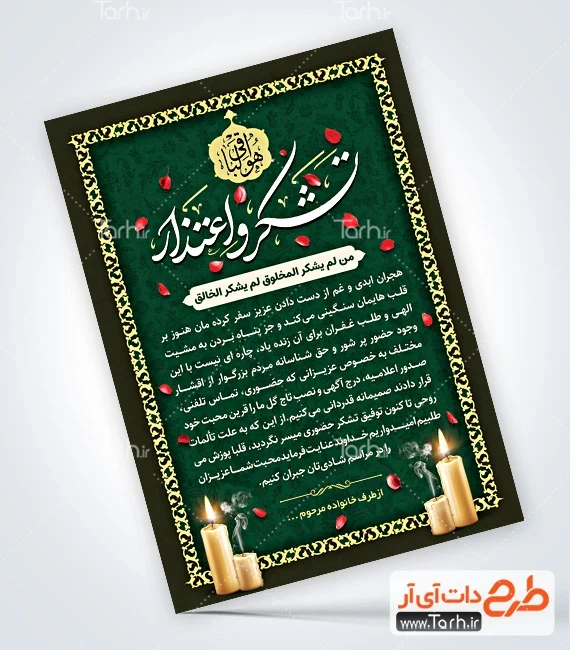 Tarh.ir
Tarh.ir
هو الباقی
تشکر و اعتذار
من لم یشکر المخلوق لم یشکر الخالق
هجران ابدی و غم از دست دادن عزیز سفر کرده مان هنوز بر
قلب هایمان سنگینی می‌کند و جز پناه بردن به مشیت
الهی و طلب غفران برای آن زنده یاد، چاره ای نیست با این
وجود حضور پر شور و حق شناسانه مردم بزرگوار از اقشار
مختلف به خصوص عزیزانی که حضوری، تماس تلفنی،
صدور اعلامیه، درج آگهی و نصب تاج گل ما را قرین محبت خود
قرار دادند صمیمانه قدردانی می‌کنیم. از این که به علت تألمات
روحی تا کنون توفیق تشکر حضوری میسر نگردید، قلبا پوزش می
طلبیم امیدواریم خداوند عنایت فرماید محبت شما عزیزان
را در مراسم شادی‌تان جبران کنیم.
از طرف خانواده مرحوم ...
طرح دات آی آر
www.Tarh.ir